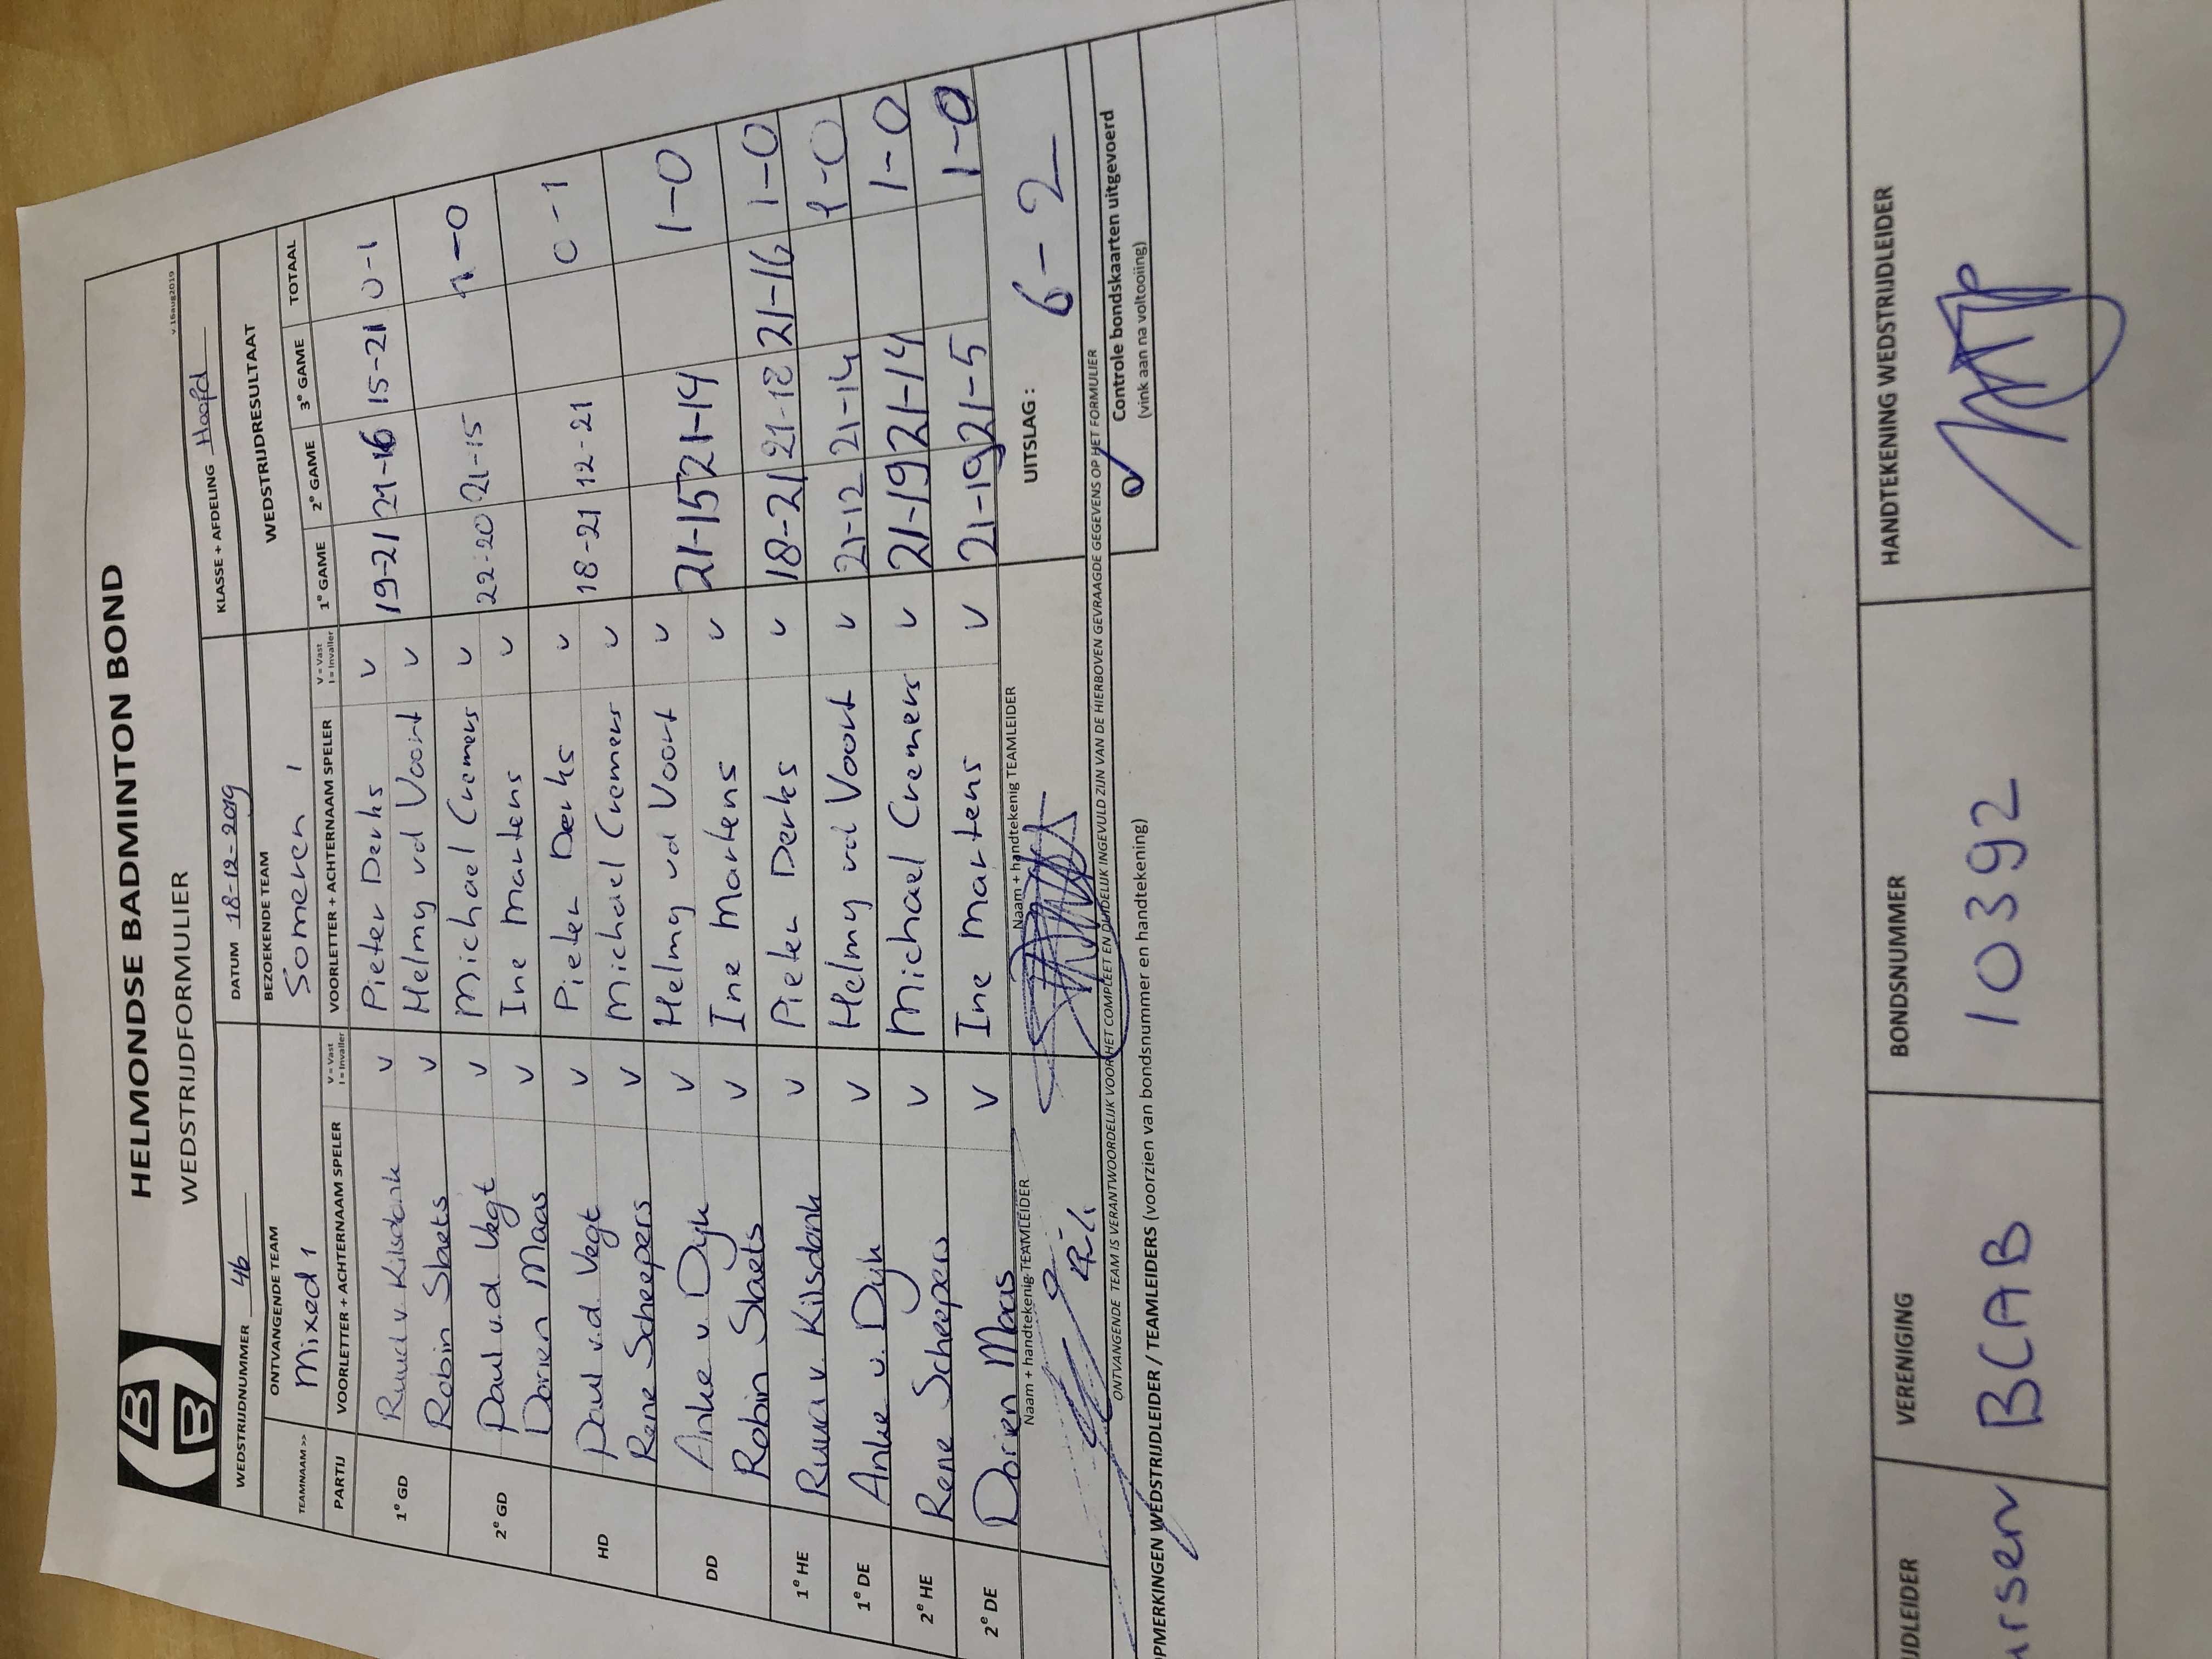 HELMONDSE BADMINTON BOND
WEDSTRIJDFORMULIER
v.16aug2019
WEDSTRIJDNUMMER 46 DATUM 18-12-2019 KLASSE + AFDELING Hoofd
ONTVANGENDE TEAM BEZOEKENDE TEAM WEDSTRIJDRESULTAAT
TEAMNAAM >> Mixed 1 Someren 1
PARTIJ VOORLETTER + ACHTERNAAM SPELER V = Vast I = Invaller VOORLETTER + ACHTERNAAM SPELER V = Vast I = Invaller 1e GAME 2e GAME 3e GAME TOTAAL
1e GD Ruud v. Kilsdonk V Pieter Derks V 19-21 21-16 15-21 0-1
Robin Slaets V Helmy vd Voort V
2e GD Paul v.d. Vegt V Michael Cremers V 22-20 21-15 1-0
Dorien Maas V Ine Martens V
HD Paul v.d. Vegt V Pieter Derks V 18-21 12-21 0-1
Rene Scheepers V Michael Cremers V
DD Anke v. Dijk V Helmy vd Voort V 21-15 21-14 1-0
Robin Slaets V Ine Martens V
1e HE Ruud v. Kilsdonk V Pieter Derks V 18-21 21-18 21-16 1-0
1e DE Anke v. Dijk V Helmy vd Voort V 21-12 21-14 1-0
2e HE Rene Scheepers V Michael Cremers V 21-19 21-14 1-0
2e DE Dorien Maas V Ine Martens V 21-19 21-5 1-0
Naam + handtekenig TEAMLEIDER Naam + handtekenig TEAMLEIDER UITSLAG : 6-2
ONTVANGENDE TEAM IS VERANTWOORDELIJK VOOR HET COMPLEET EN DUIDELIJK INGEVULD ZIJN VAN DE HIERBOVEN GEVRAAGDE GEGEVENS OP HET FORMULIER
Controle bondskaarten uitgevoerd
(vink aan na voltooiing)
PMERKINGEN WEDSTRIJDLEIDER / TEAMLEIDERS (voorzien van bondsnummer en handtekening)
JDLEIDER VERENIGING BONDSNUMMER HANDTEKENING WEDSTRIJDLEIDER
ursen BCAB 10392